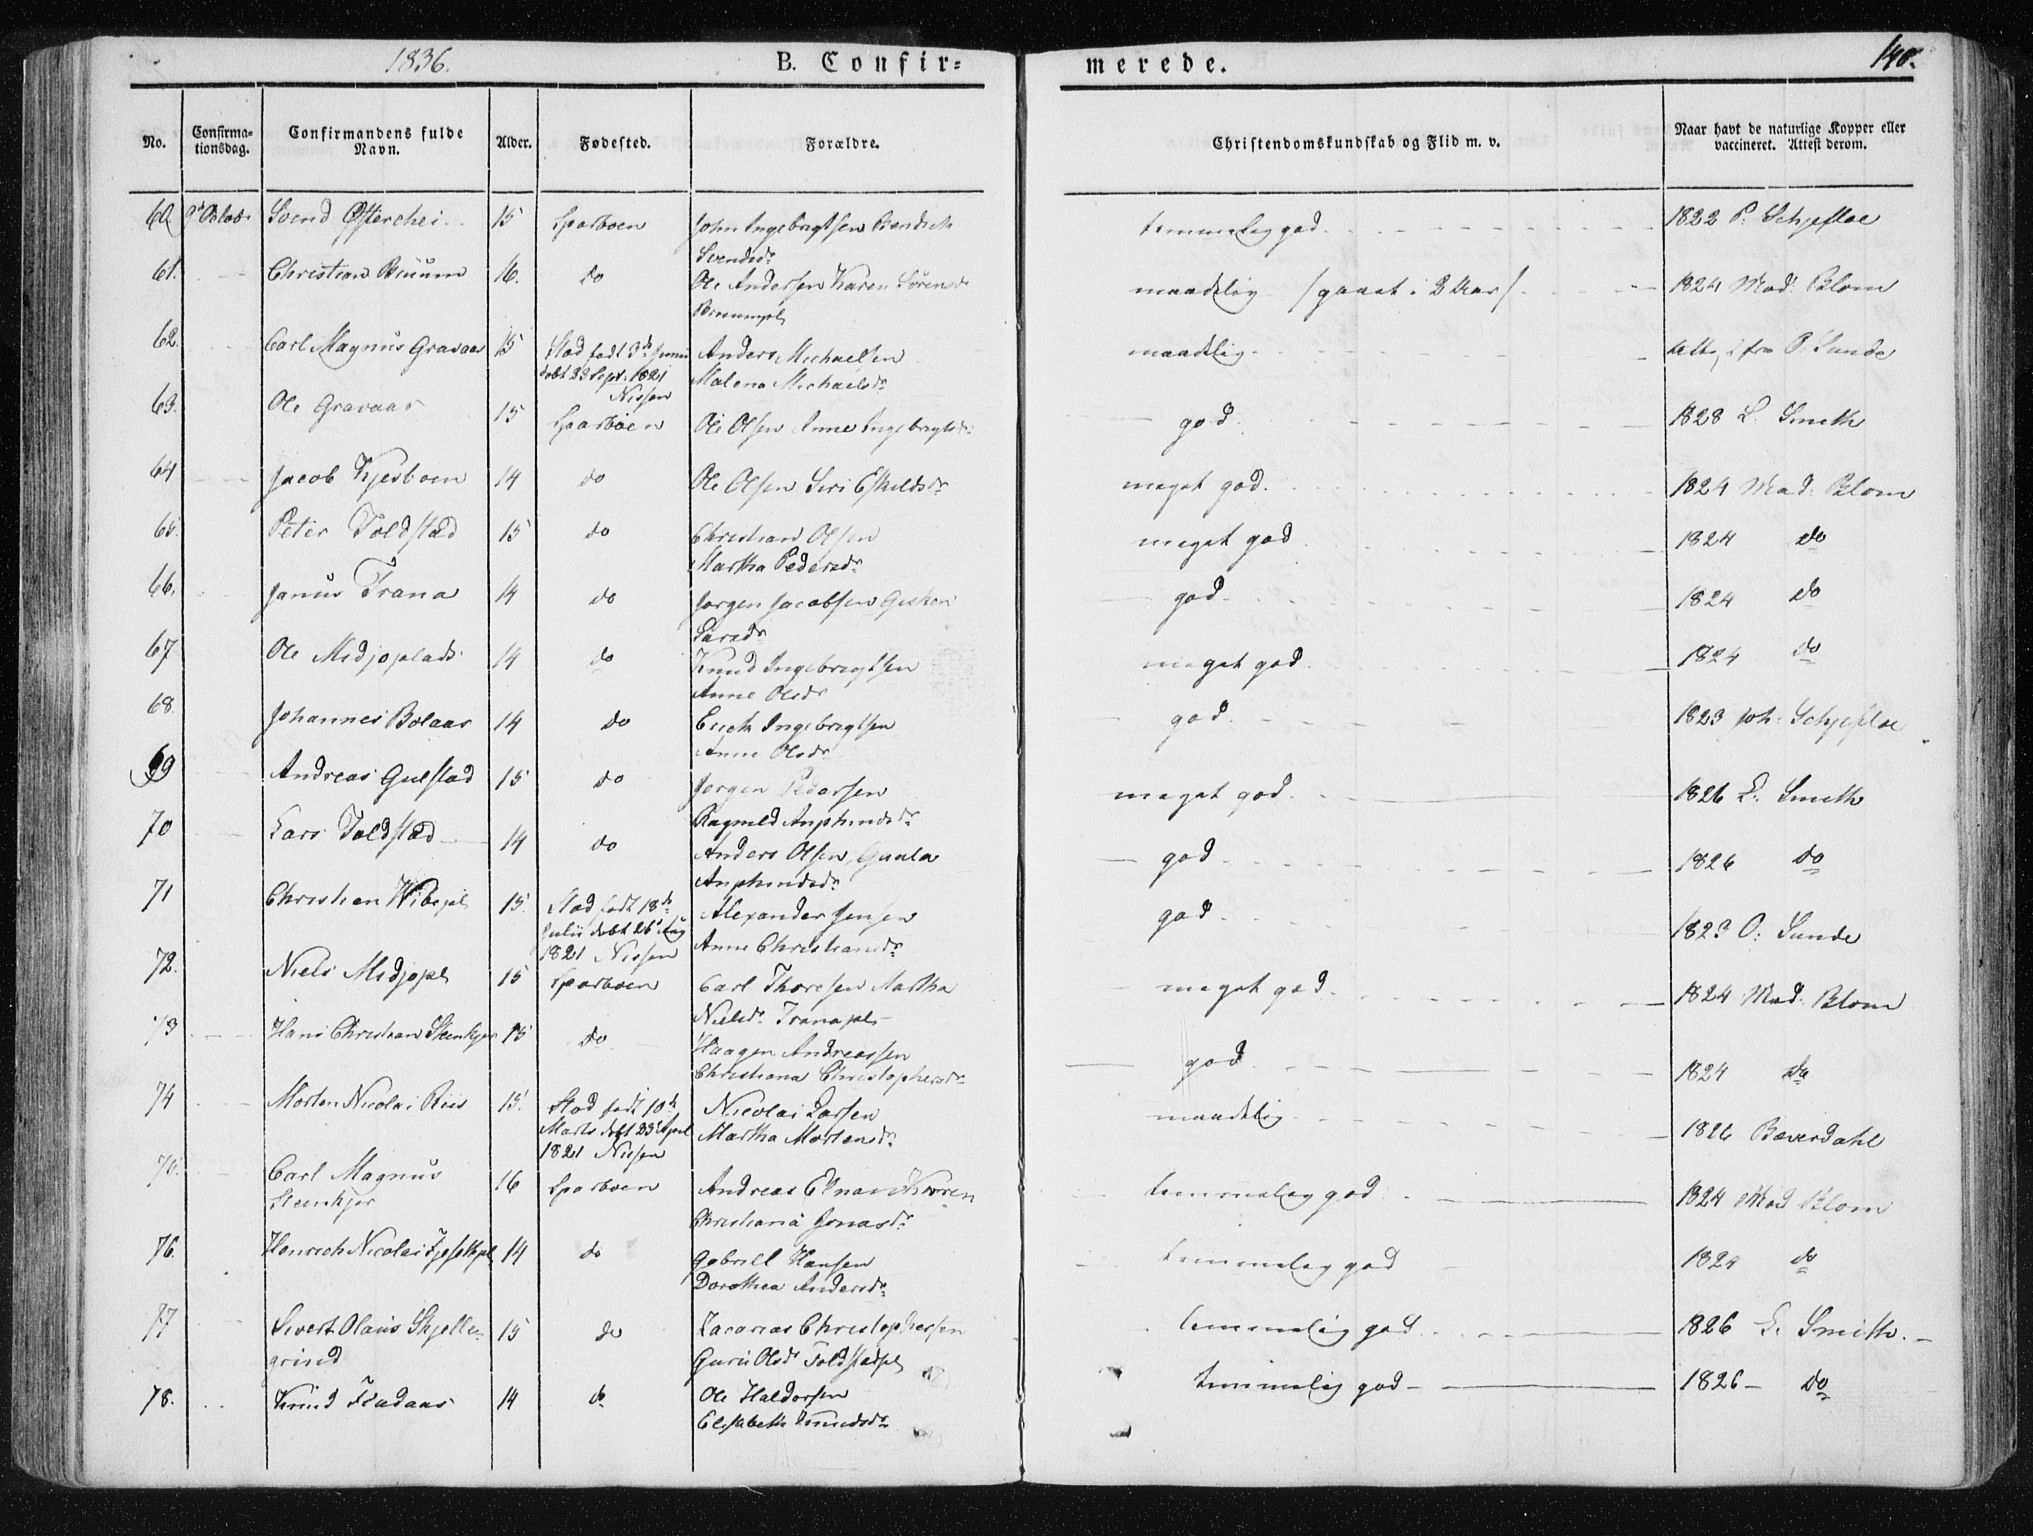 1836. B. Confir= merede. 140.
No. Confirma-tionsdag. Confirmandens fulde Navn. Alder. Fødested. Forældre. Christendomskundskab og Flid m. v. Naar havt de naturlige Kopper eller vaccineret. Attest derom.
60. 9d Octob. Svend 15 Sparboen John Ingebrigtsen temmelig god 1822 P. Schjefloe
Svendsdr
61. Christian 16. do Ole Andersen Karen Sørensdr maadelig /gaaet i 2 Aar/ 1824 Mad. Blom
62. Carl Magnus Gravaas 15 Stod født 3de Juni Anders Michaelsen maadelig fra O. Sunde
døbt 23 Sept. 1821 Malena Michaelsdr
Nissen
63. Ole Gravaas 15 Sparboen Ole Olsen Anne Ingebrigtsdr god 1828 L. Smith
64 Jacob Kjesboen 14 do Ole Olsen Siri Eskildsdr meget god. 1824 Mad. Blom
65. Peter Toldstad 15 do Christian Olsen meget god 1824 do
Martha Pedersdr
66. Janus Trana 14 do Jørgen Jacobsen god 1824 do
Larsdr
67 Ole Midjoplads 14 do Knud Ingebrigtsen meget god 1824 do
Anne Olsdr
68. Johannes Bolaas 14 do Erich Ingebrigtsen god 1823 Joh. Schjefloe
Anne Olsdr
69 Andreas Gulstad 15 do Jørgen Pedersen meget god. 1826 L. Smith
Ragnild Anphindsdr
70 Lars Toldstad 14 do Anders Olsen, Gunla god 1826 do
Anphindsdr
71 Christian Wibepl 15. Stod født 18de Alexander Jensen god 1823 O. Sunde
Julii døbt 26 Aug Anne Christiansdr
1821 Nissen
72. Niels Midjopl 15 Sparboen Carl Thoresen Martha meget god. 1824 Mad. Blom
Nielsdr Tranapl
73 Hans Christian Steenkjer 15 do Haagen Andreassen god 1824 do
Christiana Christophersdr
74 Morten Nicolai Riis 15. Stod født 10de Nicolai Larsen maadelig 1826 Bæverdahl
Marts døbt 23 April Martha Mortensdr
1821 Nissen
75. Carl Magnus 16 Sparboen Andreas temmelig god 1824 Mad Blom
Steenkjer Christiana Jonasdr
76. Henrich Nicolai 14 do Gabriel Hansen temmelig god 1824 do
Dorothea Andersdr
77 Sivert Olaus Skjelle- 15 do Zacarias Christophersen temmelig god 1826 L. Smith.
grind Guru Olsdr Toldstadpl
78. Knud Fladaas 14 do Ole Haldorsen temmelig god 1826 do
Elisabeth Knudsdr